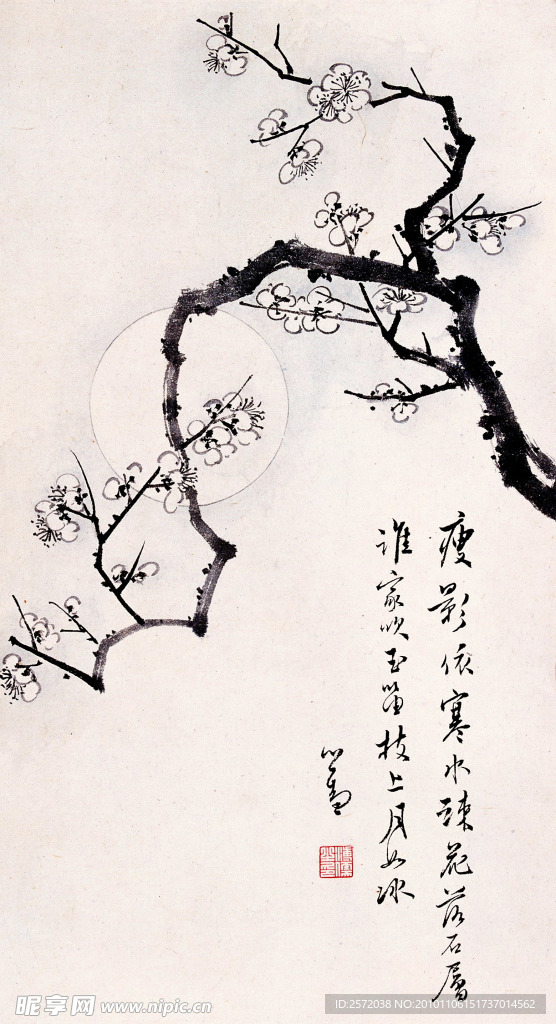 瘦影依寒水疎花落石層
誰家吹玉笛枝上月如冰
心畬
昵享网 www.nipic.cn
ID:2572038 NO:20101106151737014562